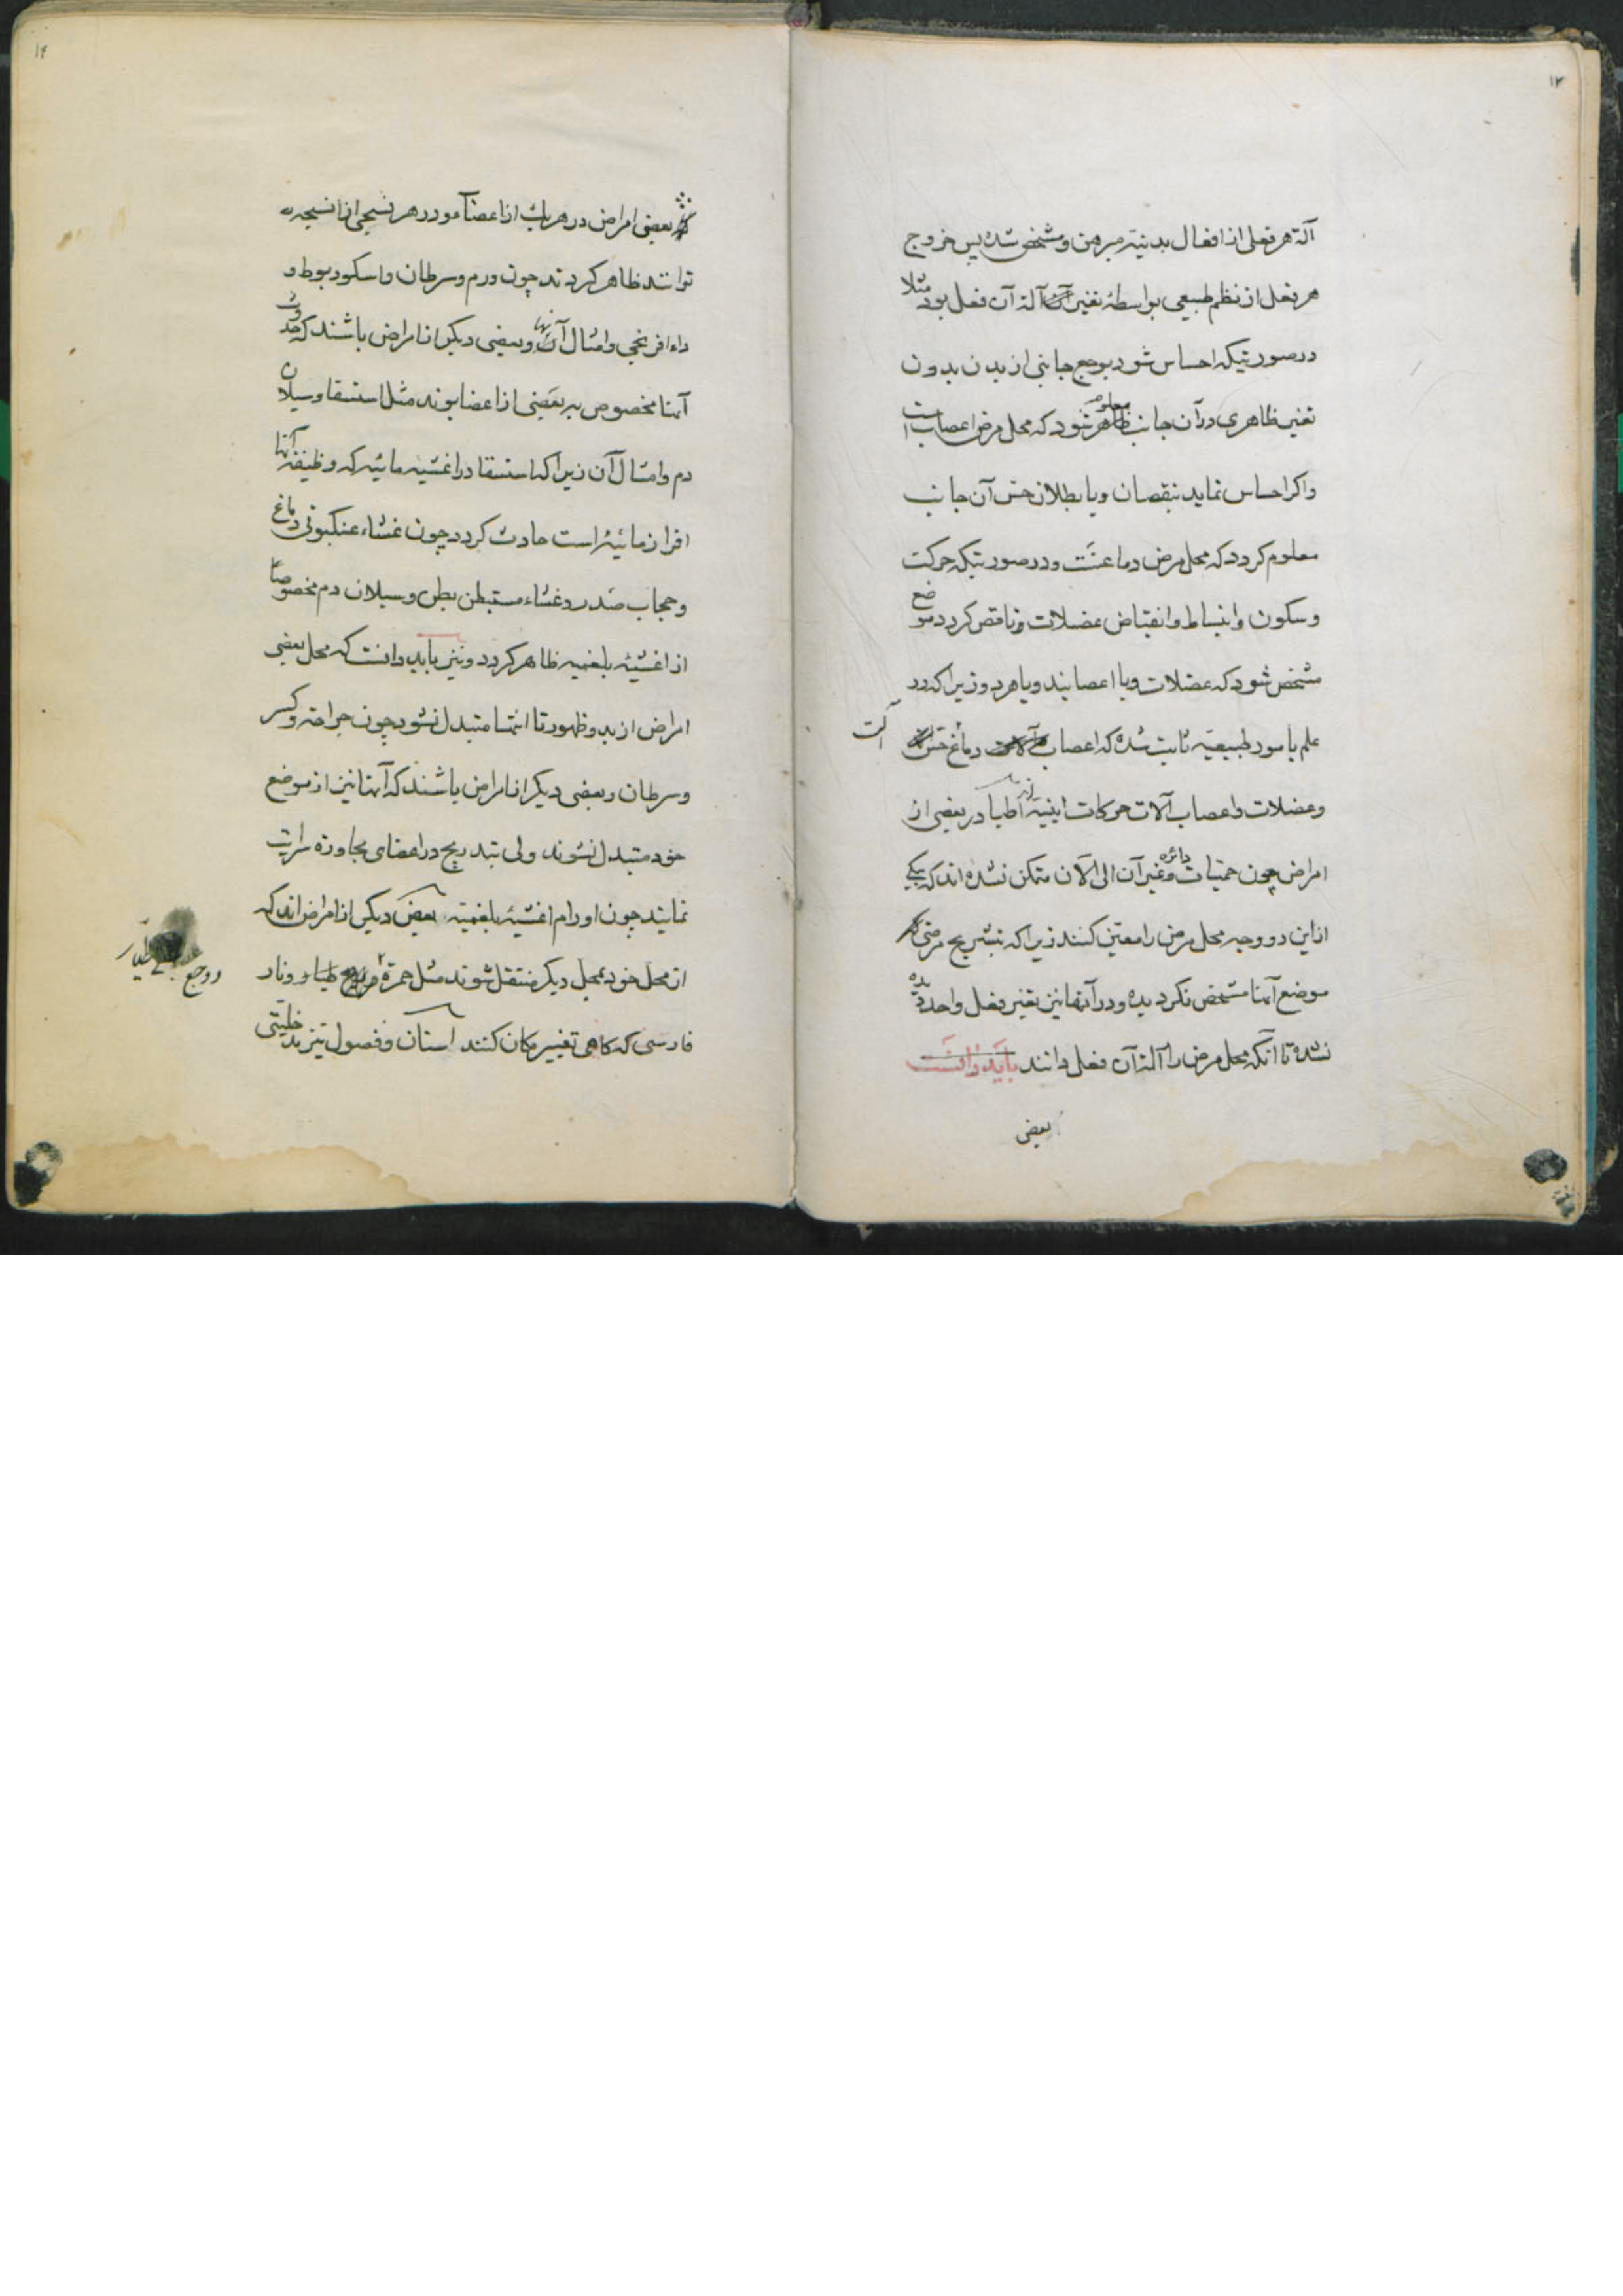 ۱۳
آلة هر فعلی از افعال بدنیّه مبرهن و مشخص شده پس خروج
هر فعل از نظم طبیعی بواسطهٔ تغیر آلة آن فعل بود مثلا
در صورتیکه احساس شود بوجع جانبی از بدن بدون
تغیر ظاهری در آن جانب معلوم شود که محل مرض اعصاب است
و اکر احساس نماید بنقصان و یا بطلان حس آن جانب
معلوم کردد که محل مرض دماغست و در صورتیکه حرکت
و سکون و انبساط و انقباض عضلات ناقص کردد موضع
مشخص شود که عضلات و یا اعصابند و یا هر دو زیرا که در
علم بامور طبیعیّه ثابت شده که اعصاب دماغ حس آلت
و عضلات و اعصاب آلات حرکات اطبا در بعضی از
امراض چون حمّیات دائره و غیر آن الی الآن متمکن نشده اند که بیکی
از این دو وجه محل مرض را معیّن کنند زیرا که بتشریح مرضی
موضع آنها مشخص نکردیده و در آنها نیز تغیر فعل واحد دیده
نشده تا آنکه محل مرض را آلة آن فعل دانند باید دانست
بعضی
۱۴
بعضی امراض در هریک از اعضا و در هر نسجی از انسجه
توانند ظاهر کردند چون ورم و سرطان و اسکوربوط و
داء افرنجی و امثال آنها و بعضی دیکر از امراض باشند که حدوث
آنها مخصوص به بعضی از اعضا بوند مثل استسقا و سیلان
دم و امثال آن زیرا که استسقا در اغشیه مائیه که وظیفه آنها
افراز مائیة است حادث کردد چون غشاء عنکبوتی دماغ
و حجاب صدر و غشاء مستبطن بطن و سیلان دم مخصوصا
از اغشیهٔ بلغمیه ظاهر کردد و نیز باید دانست که محل بعضی
امراض از بدو ظهور تا انتها متبدل نشود چون جراحة و کسر
و سرطان و بعضی دیکر از امراض باشند که آنها نیز از موضع
خود متبدل نشوند ولی بتدریج در اعضای مجاوره سرایت
نمایند چون اورام اغشیهٔ بلغمیّه بعض دیکر از امراض اند که
از محل خود بمحل دیکر منتقل شوند مثل حمرة و نار
ووجع طیار
فارسی که کاهی تغییر مکان کنند اسنان و فصول نیز مدخلیتی